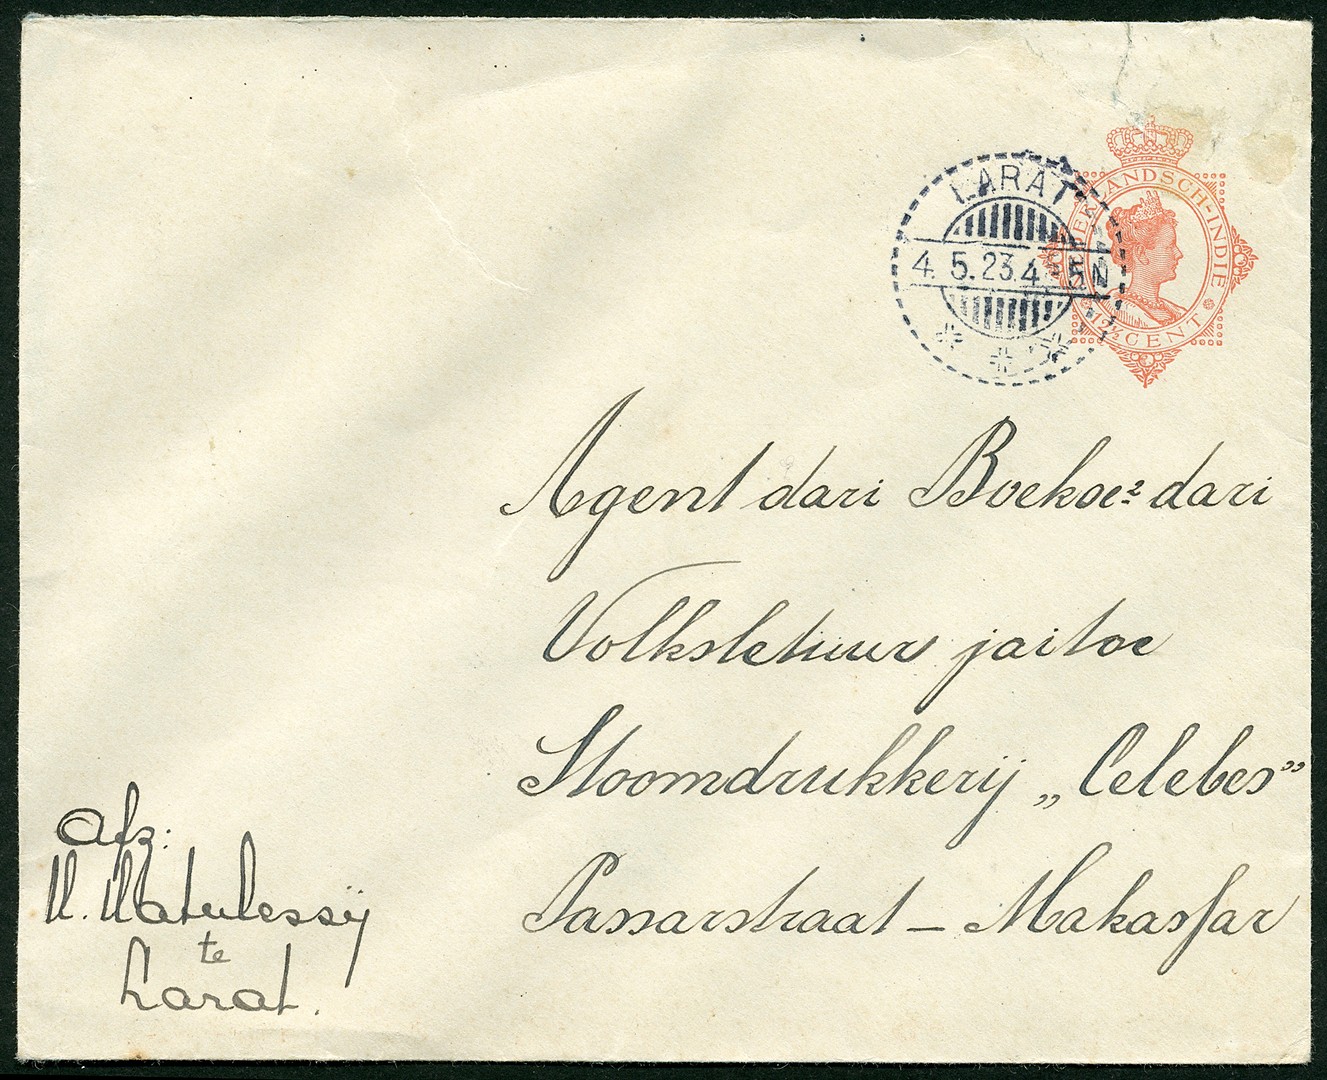 LARAT
4.5.23.4-5N
NEDERLANDSCH-INDIE
12½ CENT
Agent dari Boekoe² dari
Volksletuur jaitoe
Stoomdrukkerij „Celebes”
Passarstraat – Makassar
Afz:
M. Matulessÿ
te
Larat.